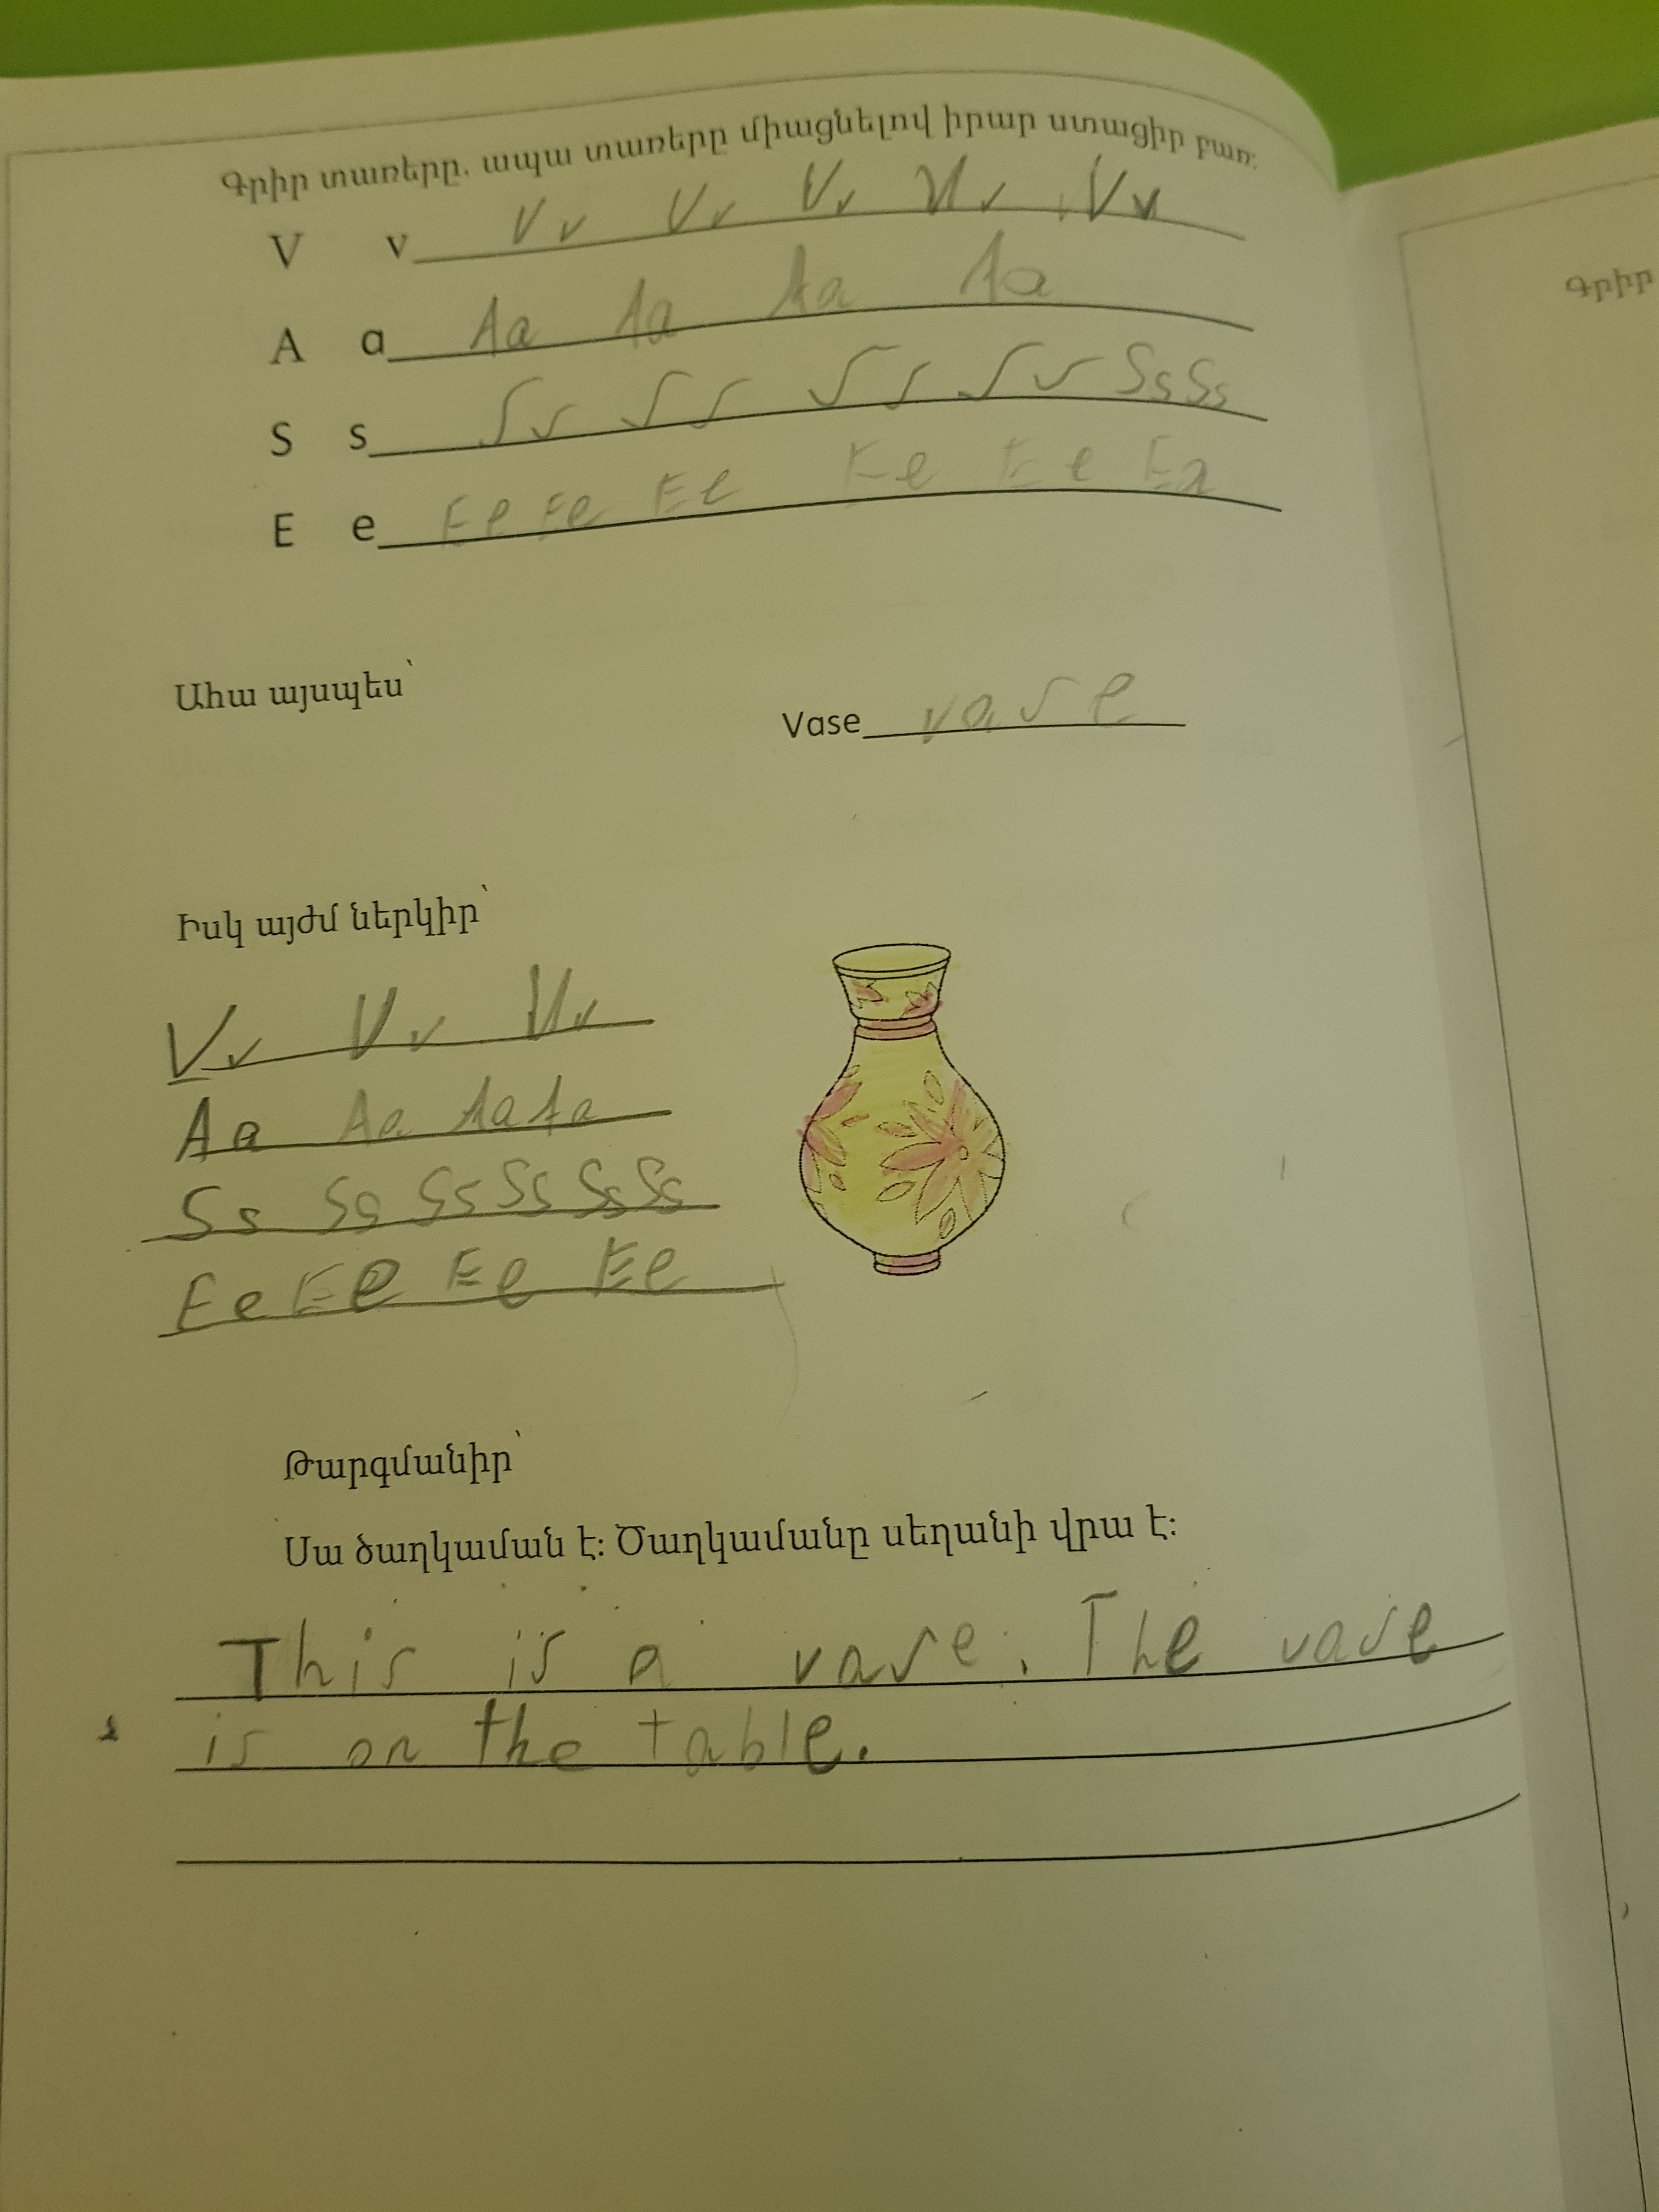 Գրիր տառերը. ապա տառերը միացնելով իրար ստացիր բառ:
V v Vv Vv Vv Vv Vv
A a Aa Aa Aa Aa
S s Ss Ss Ss Ss Ss Ss
E e Ee Ee Ee Ee Ee
Ահա այսպես՝
Vase vase
Իսկ այժմ ներկիր՝
Vv Vv Vv
Aa Aa Aa Aa
Ss Ss Ss Ss Ss Ss
Ee Ee Ee Ee
Թարգմանիր՝
Սա ծաղկաման է: Ծաղկամանը սեղանի վրա է:
This is a vase. The vase
is on the table.
Գրիր